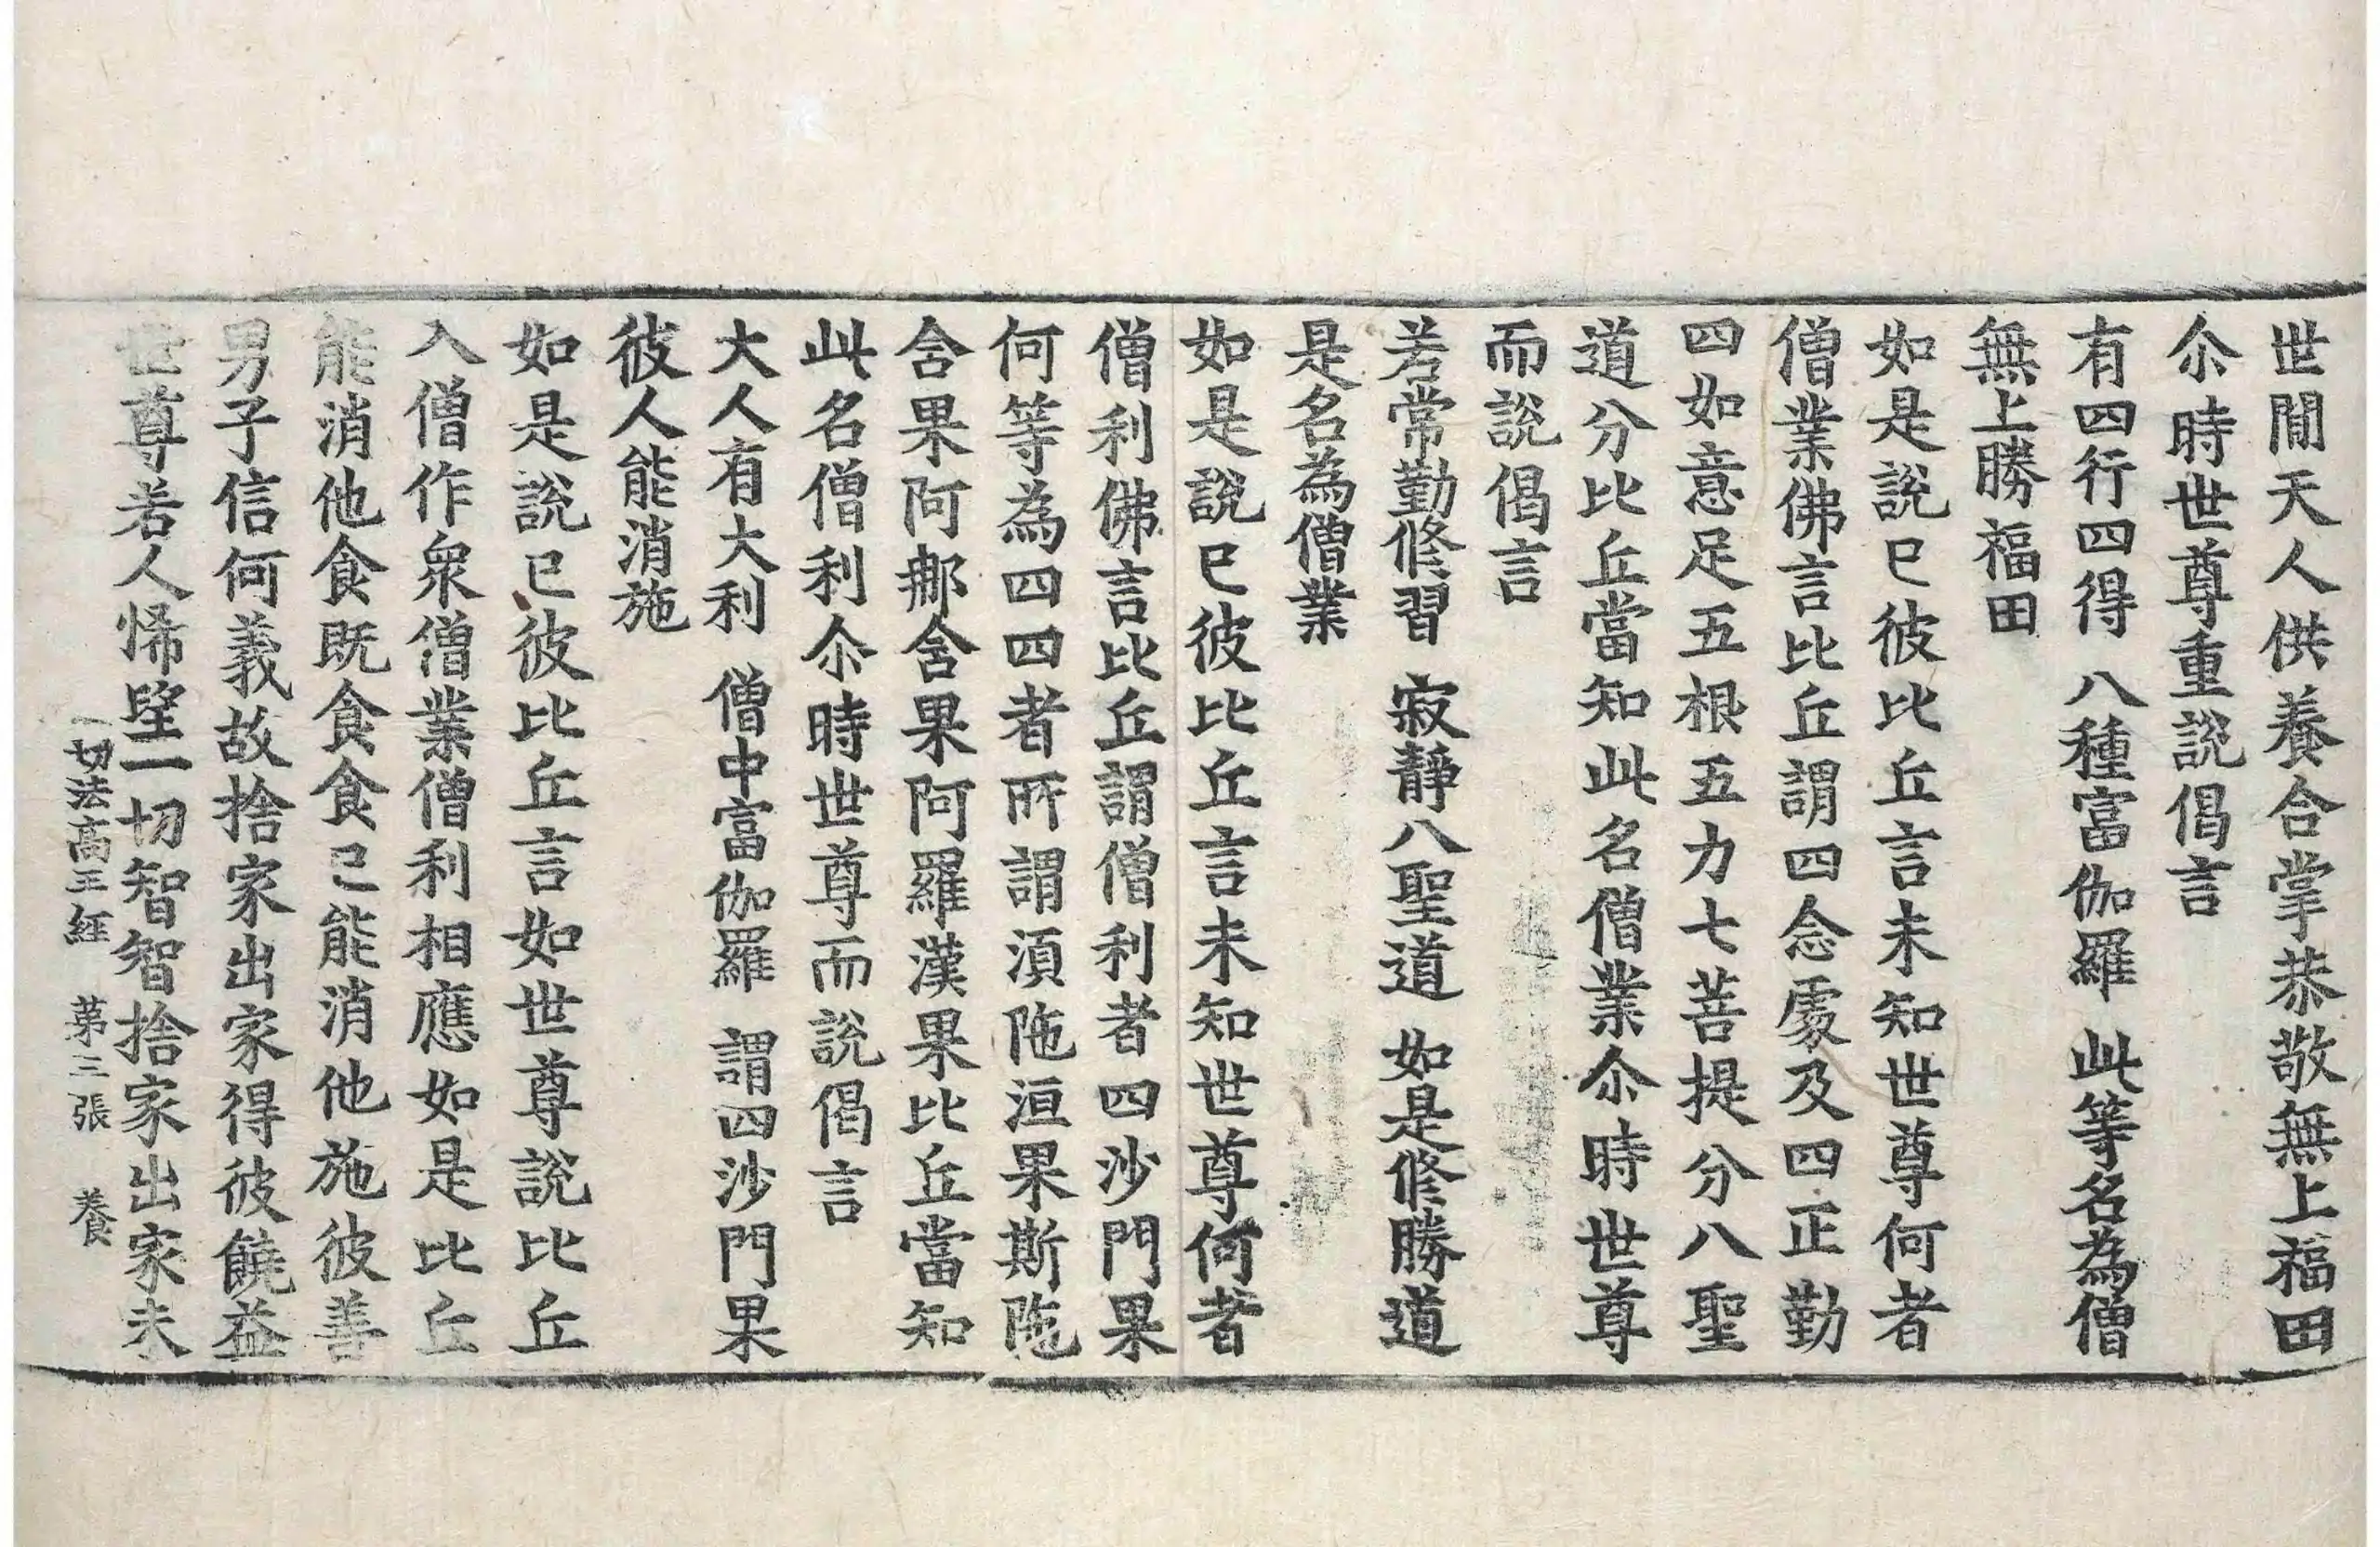 世閒天人供養合掌恭敬無上福田
尒時世尊重說偈言
有四行四得 八種富伽羅 此等名為僧
無上勝福田
如是說已彼比丘言未知世尊何者
僧業佛言比丘謂四念處及四正勤
四如意足五根五力七菩提分八聖
道分比丘當知此名僧業尒時世尊
而說偈言
若常勤修習 寂靜八聖道 如是修勝道
是名為僧業
如是說已彼比丘言未知世尊何者
僧利佛言比丘謂僧利者四沙門果
何等為四四者所謂湏陁洹果斯陁
含果阿那含果阿羅漢果比丘當知
此名僧利尒時世尊而說偈言
大人有大利 僧中富伽羅 謂四沙門果
彼人能消施
如是說已彼比丘言如世尊說比丘
入僧作衆僧業僧利相應如是比丘
能消他食既食食已能消他施彼善
男子信何義故捨家出家得彼饒益
世尊若人悕望一切智智捨家出家未
一切法高王經 苐三張 養